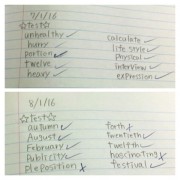 7/1/16
☆Test☆
unhealthy ✓
hurry
portion ✗
twelve ✓
heavy ✓
calculate ✓
life style ✓
physical ✓
interview ✓
expression ✓
8/1/16
☆Test☆
autumn ✓
August ✓
February ✓
Publicity ✓
preposition ✗
forth ✗
twentieth ✓
twelfth ✓
festival ✓